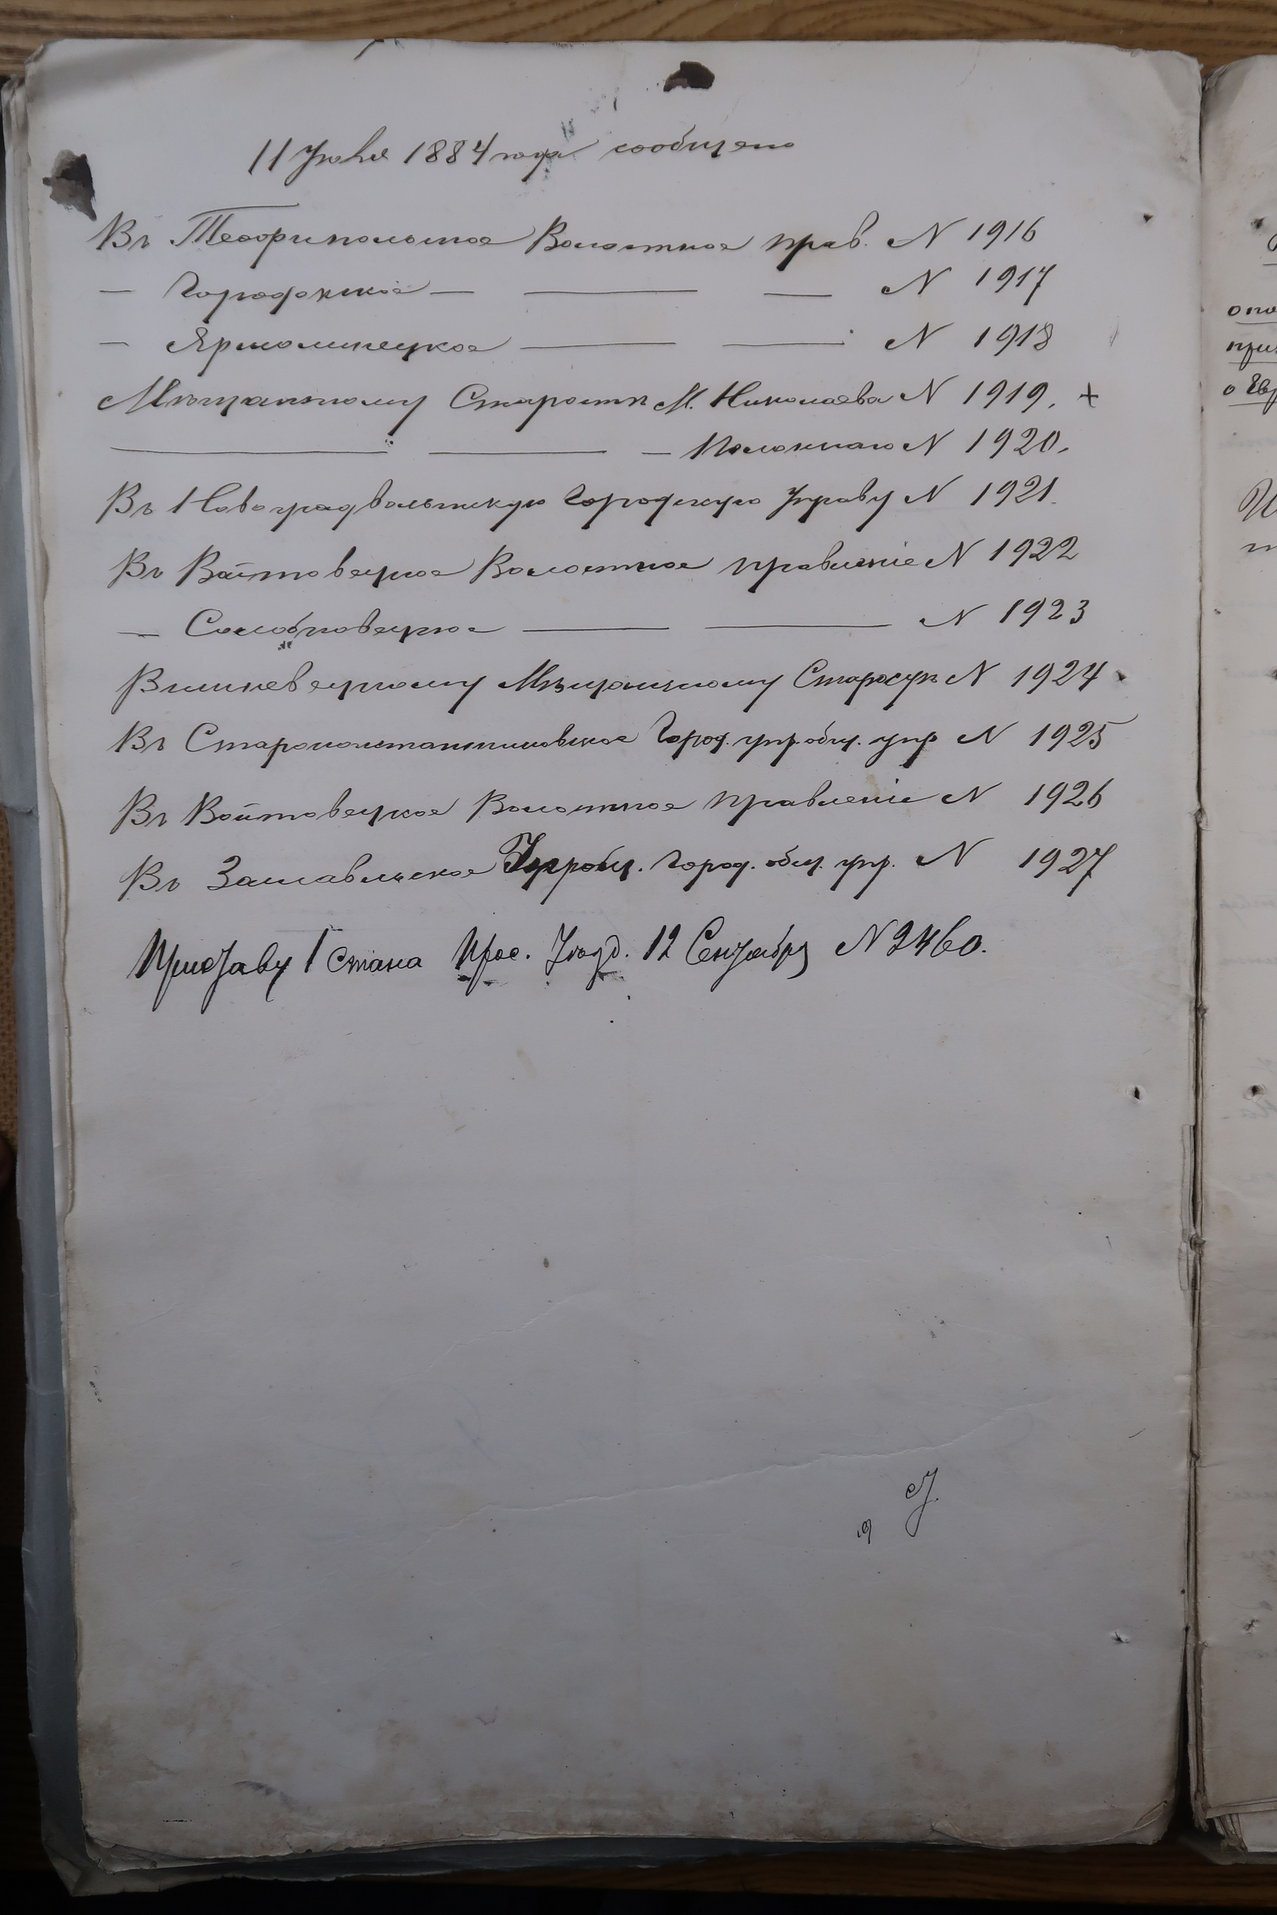 11 Июня 1884 года сообщено
Въ Теофипольское Волостное прав. N 1916
— Городокское — — — N 1917
— Ярмолинецкое — — N 1918
Мѣщанскому Старостѣ М. Николаева N 1919. +
— — — Полоннаго N 1920.
Въ Новоградволынскую Городскую Управу N 1921.
Въ Войтовецкое Волостное правленіе N 1922
— Соломновецкое — — N 1923
Вишневецкому Мѣщанскому Старостѣ N 1924
Въ Староконстантиновское Город. упр. общ. упр N 1925
Въ Войтовецкое Волостное правленіе N 1926
Въ Заславльское Город. общ. упр. N 1927
Приставу 1 стана Прос. Уѣзд. 12 Сентября N 2460.